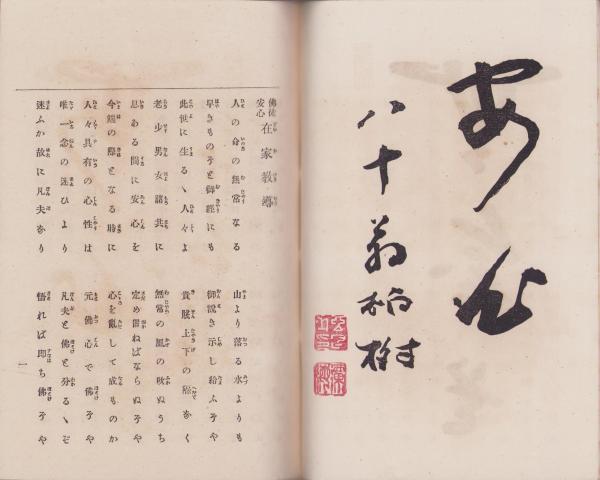 安心
八十翁柏樹
佛徒安心 在家教導
人の命の無常なる 山より落る水よりも
早きものぞと御經にも 御說き示し給ふぞや
此世に生るゝ人々よ 貴賤上下の隔なく
老少男女諸共に 無常の風の吹ぬうち
息ある間に安心を 定め置ねばならぬぞや
今端の際となる時に 心を亂して成ものか
人々具有の心性は 元佛心で佛ぞや
唯一念の迷ひより 凡夫と佛と分るゝぞ
迷ふが故に凡夫なり 悟れば即ち佛ぞや
一